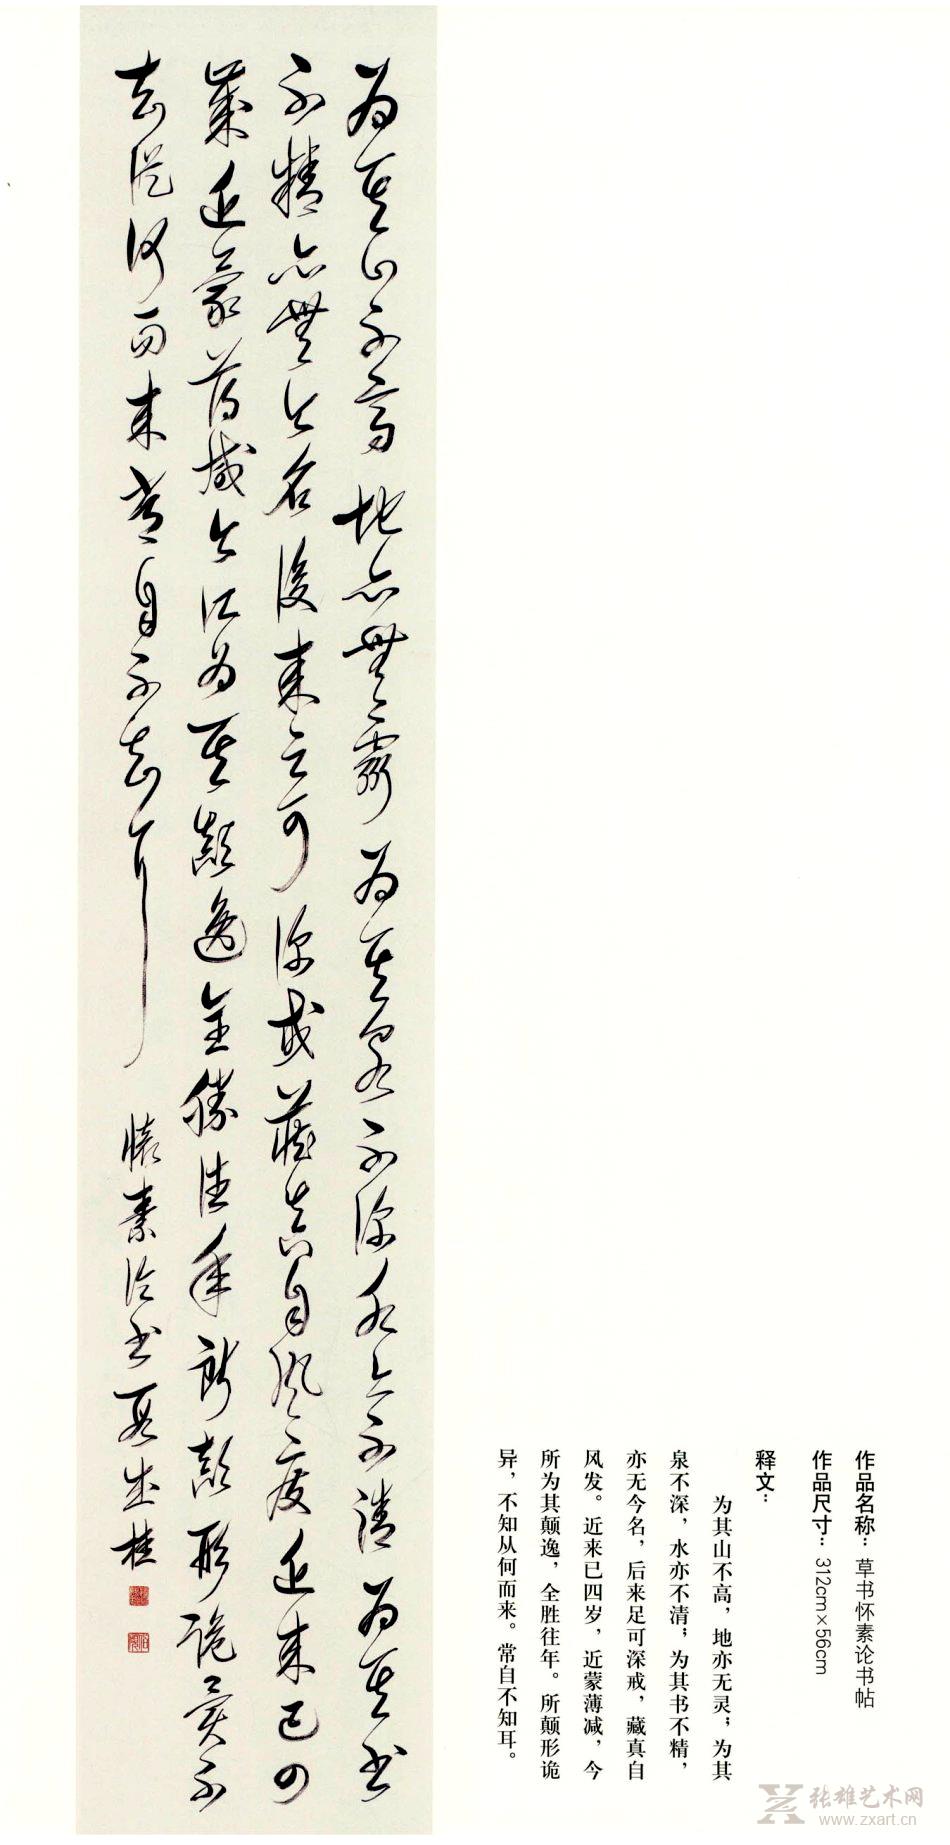 作品名称：草书怀素论书帖
作品尺寸：312cm×56cm
释文：
为其山不高，地亦无灵；为其
泉不深，水亦不清；为其书不精，
亦无今名，后来足可深戒，藏真自
风发。近来已四岁，近蒙薄减，今
所为其颠逸，全胜往年。所颠形诡
异，不知从何而来。常自不知耳。
為其山不高地亦無靈為其泉不深水亦不清為其書
不精亦無今名後來足可深戒藏真自風廢近來已四
歲近蒙薄減今所為其顛逸全勝往年所顛形詭異不
知從何而來常自不知耳 懷素論書
张雄艺术网
www.zxart.cn